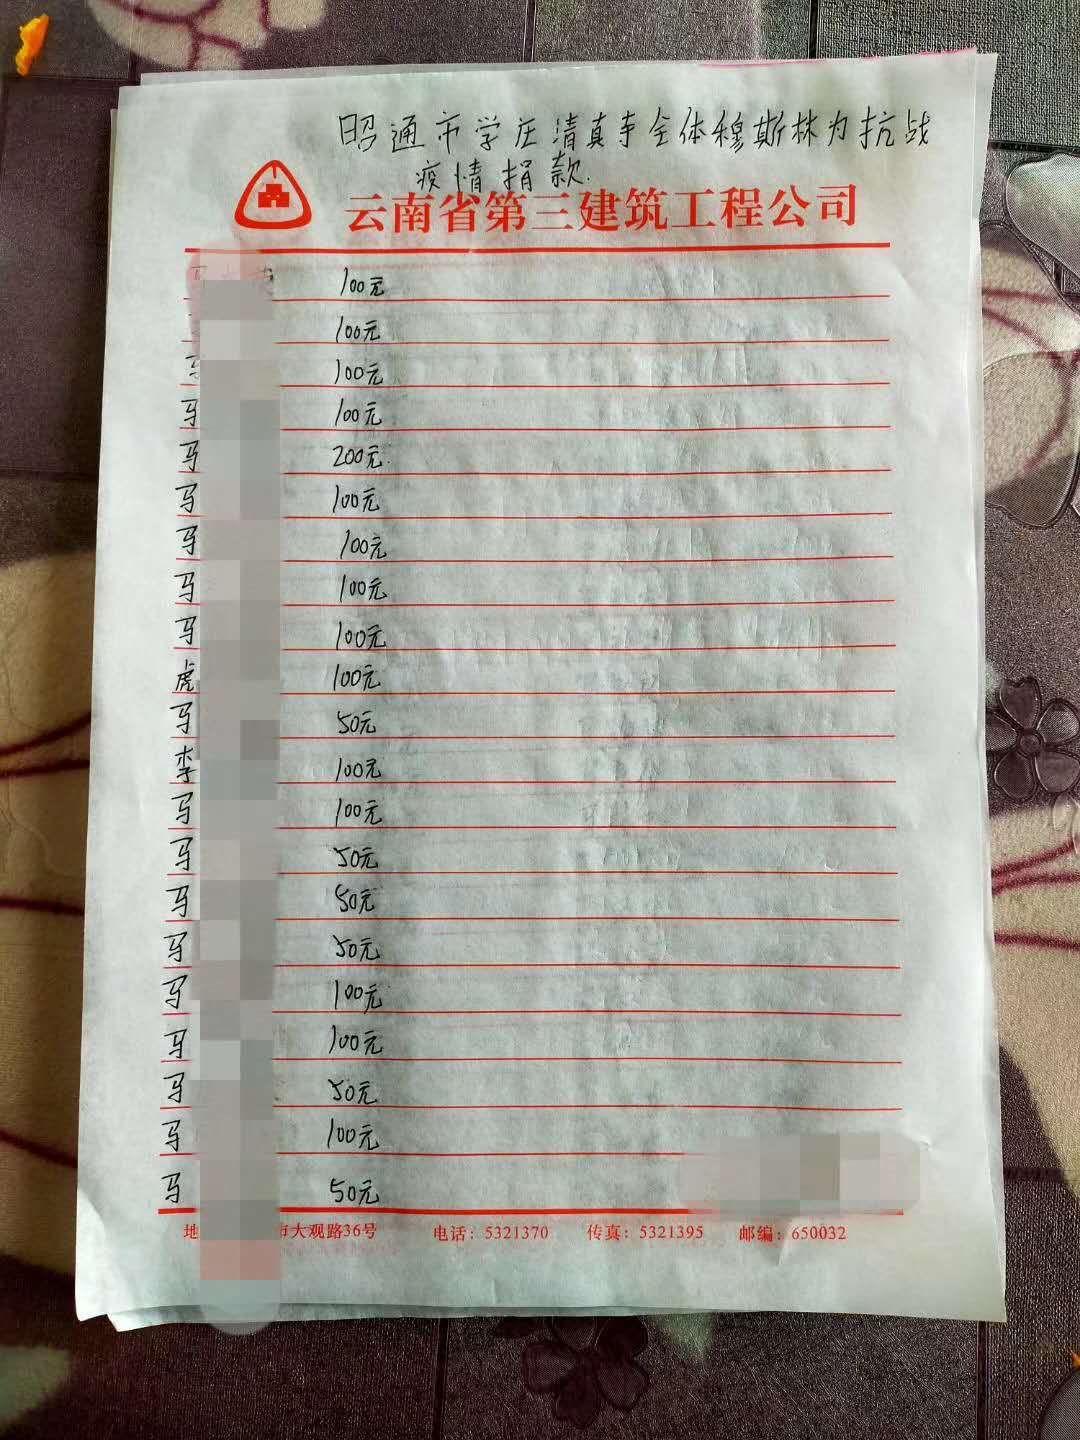 昭通市学庄清真寺全体穆斯林为抗战
疫情捐款.
云南省第三建筑工程公司
100元
100元
100元
马 100元
马 200元
马 100元
马 100元
马 100元
马 100元
虎 100元
马 50元
李 100元
马 100元
马 50元
马 50元
马 50元
马 100元
马 100元
马 50元
马 100元
马 50元
地 市大观路36号 电话：5321370 传真：5321395 邮编：650032